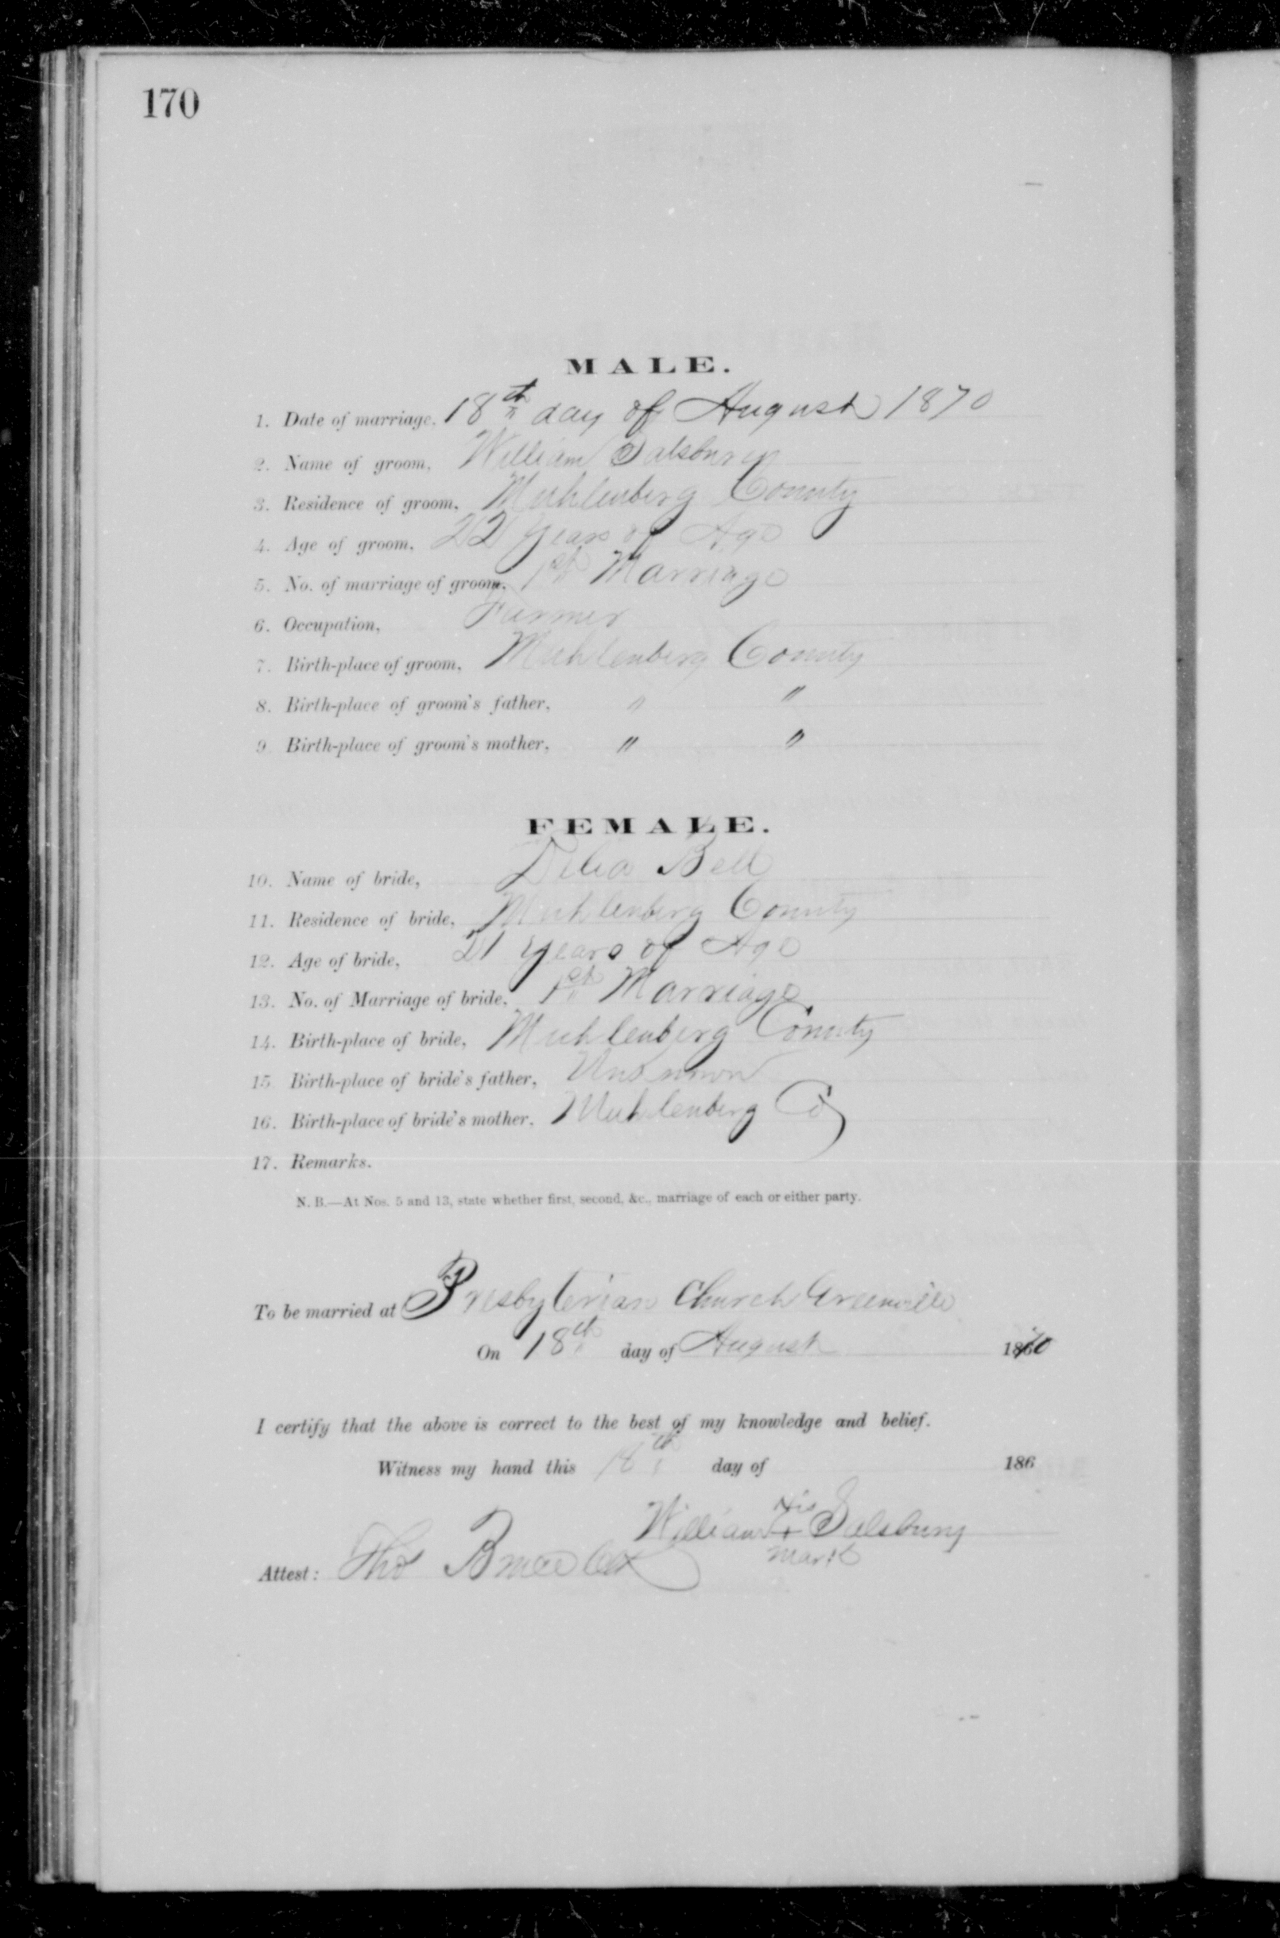 170
MALE.
1. Date of marriage, 18th day of August 1870
2. Name of groom, William Salsbury
3. Residence of groom, Muhlenberg County
4. Age of groom, 22 years of Age
5. No. of marriage of groom, 1st Marriage
6. Occupation, Farmer
7. Birth-place of groom, Muhlenberg County
8. Birth-place of groom's father, " "
9. Birth-place of groom's mother, " "
FEMALE.
10. Name of bride, Delia Bell
11. Residence of bride, Muhlenberg County
12. Age of bride, 21 years of Age
13. No. of Marriage of bride, 1st Marriage
14. Birth-place of bride, Muhlenberg County
15. Birth-place of bride's father, Unknown
16. Birth-place of bride's mother, Muhlenberg Co
17. Remarks.
N. B.—At Nos. 5 and 13, state whether first, second, &c., marriage of each or either party.
To be married at Presbyterian Church Greenville
On 18th day of August 1870
I certify that the above is correct to the best of my knowledge and belief.
Witness my hand this 18th day of 186
William his + mark Salsbury
Attest: Thos Bruce